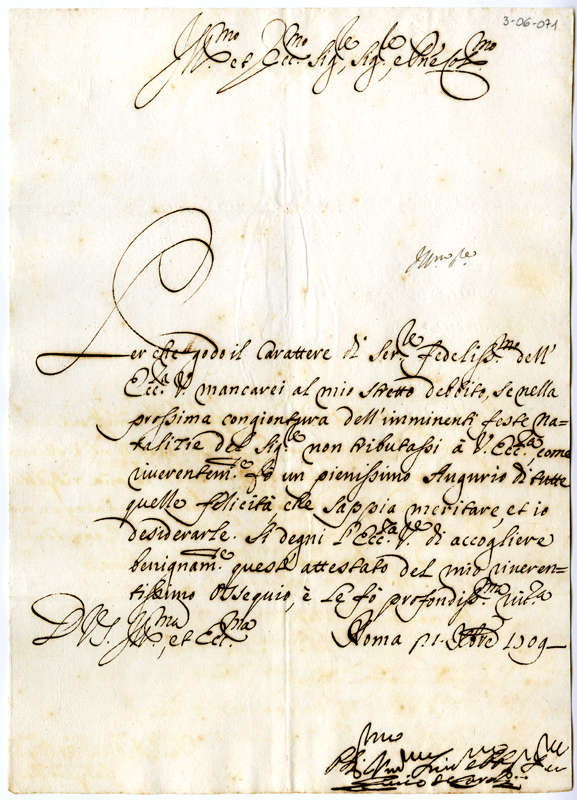 3-06-071
Ill.mo et Ecc.mo Sig.re, Sig.re, e Pñe Col.mo
Per che godo il Carattere di Ser.re fedeliss.mo dell'
Ecc.za V. mancarei al mio stretto debbito, se nella
prossima congiontura dell'imminenti feste Na=
talizie del Sig.re non tributassi à V. Ecc.za come
riverentem.te fò un pienissimo Augurio di tutte
quelle felicità che sappia meritare, et io
desiderarle. Si degni l'Ecc.za V.ra di accogliere
benignam.te questo attestato del mio riveren-
tissimo Ossequio, è le fò profondiss.ma riv.za
D V.S. Ill.ma, et Ecc.ma
Roma p.1. Xbre 1709